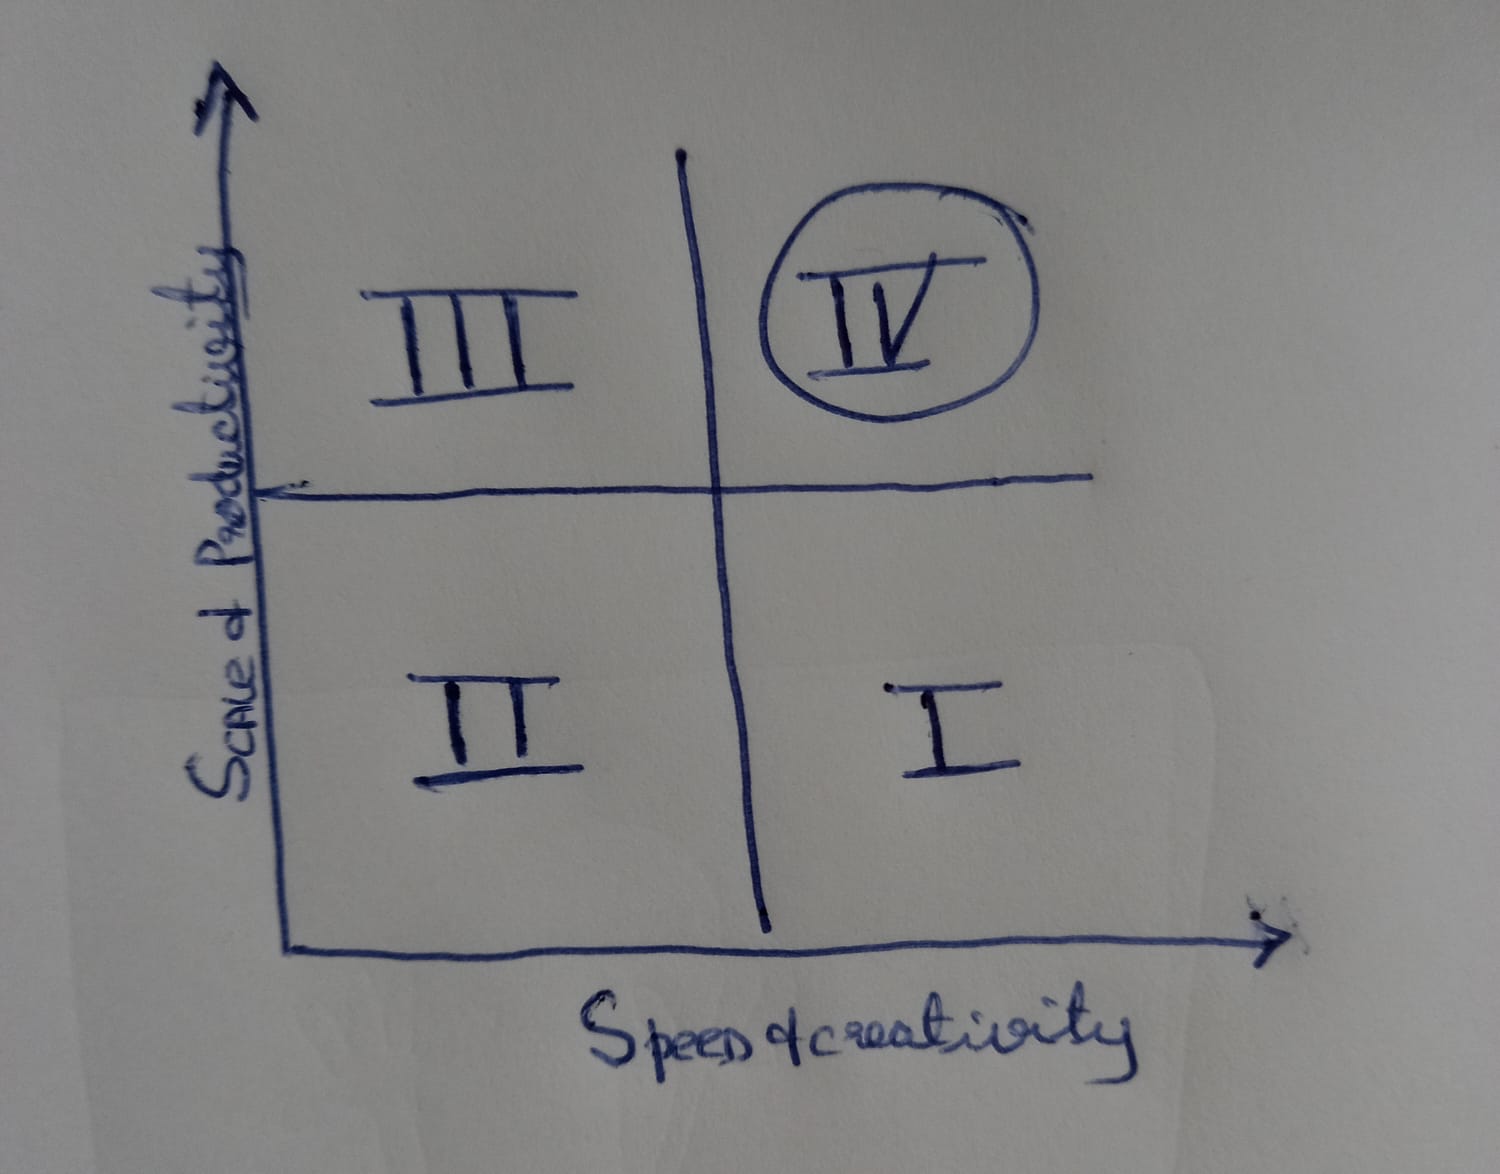 Scale & Productivity
III
IV
II
I
Speed & creativity